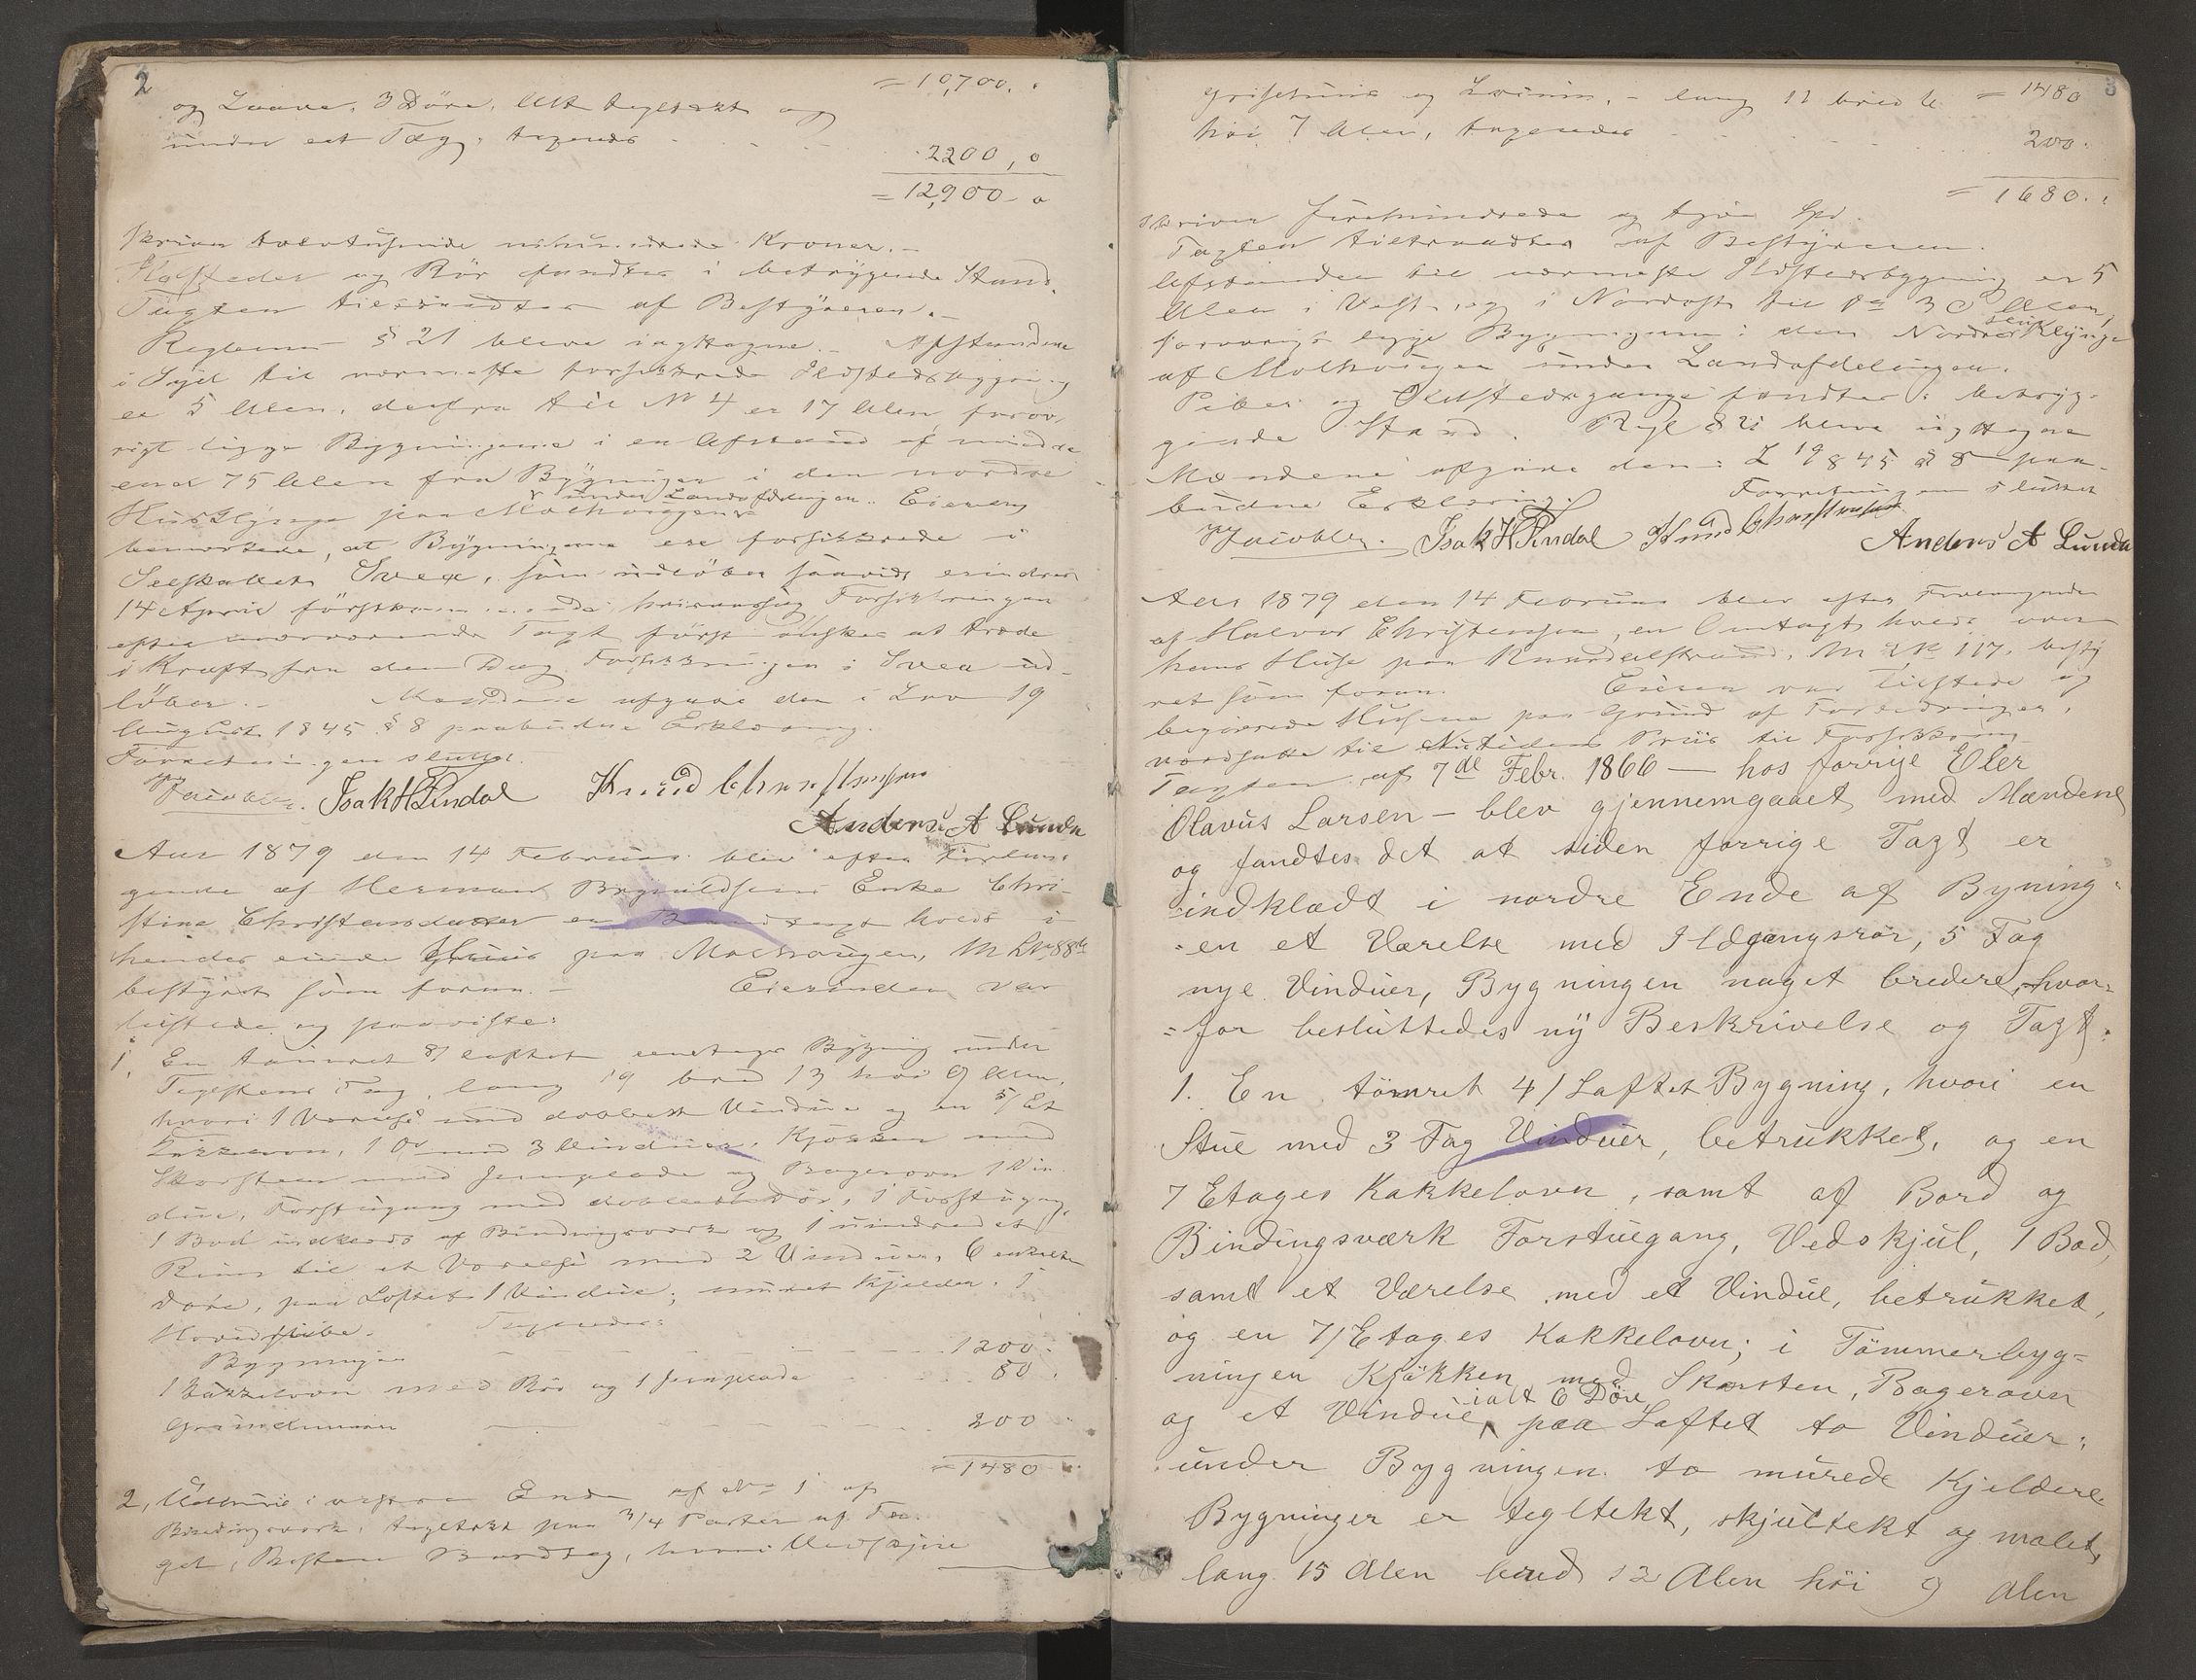 2
= 10,700. "
og Laave, 3 Döre. Alt tegltækt og
under eet Tag, taxeredes
2200, 0
= 12,900 - 0
skriver tolvtusinde nihundrede Kroner. -
Ildsteder og Rör fandtes i betryggende Stand.
Taxten tiltraadtes af Bestyreren. -
Reglerne § 21 bleve iagttagne. - Afstanden
i Syd til nærmeste forsikkrede Ildstedsbygning
er 5 Alen, derfra til No 4 er 17 Alen, forøv-
rigt ligge Bygningerne i en Afstand af mindre
end 75 Alen fra Bygninger i den nordre
Huusklynge paa Molhougen under Landafdelingen. Eieren
bemærkede, at Bygningerne ere forsikkrede i
Selskabet Svea, som udlöber saavidt erindres
14 April förstkommende, hvorfor Forsikkringen
efter nærværende Taxt först ønskes at træde
i Kraft fra den Dag Forsikkringen i Svea ud-
löber. - Mændene afgave den i Lov 19
August 1845 § 8 paabudne Erklæring.
Forretningen sluttet.
Jacobsen. Isak H Lindal Knud Christensen
Anders A Lunde
Aar 1879 den 14 Februar blev efter Forlan-
gende af Herman Brynildsens Enke Chri-
stine Christensdatter en Brandtaxt holdt i
hendes eiende Huus paa Molhougen, M No 88
bestyret som foran. - Eierinden var
tilstede og paaviste:
1. En tømret 8/ laftet eenetages Bygning under
Teglsteens Tag, lang 19 bred 13 høi 9 Alen,
hvori 1 Værelse med dobbelt Vindue og en 5/ Et
Kakkelovn, 1 Do med 3 Vinduer, Kjøkken med
Skorsteen med Jernplade og Bagerovn 1 Vin-
due, Forstugang med dobbelt Dör, 1 Forstugang,
1 Bod indklædt af Bindingsværk og 1 uindredet
Rum til et Værelse med 2 Vinduer, 6 enkelte
Döre, paa Loftet 1 Vindue; muret Kjelder. 1
Hovedpibe. Taxeredes:
Bygningen 1200.
1 Kakkelovn med Rör og 1 Jernplade 80.
Grundmuren 200
= 1480
2, Udhuus i vestre Ende af No 1 af
Bindingsværk, tegltækt paa 3/4 Parter af Ta-
get, Resten Bordtag, hvori Vedskjul
3
Grisehuus og Lokum, - lang 11 bred 6 = 1480
høi 7 Alen, taxeredes
200.
= 1680. "
skriver firehundrede og tyve Spd.
Taxten tiltraadtes af Bestyreren.
Afstanden til nærmeste Ildstedsbygning er 5
Alen i Vest, og i Nordost til do 30 Alen,
forøvrigt ligge Bygningerne i den Nordre Huusklynge
af Molhougen under Landafdelingen.
Piber og Ildstedsgange fandtes i betryg-
gende Stand. Regl § 21 bleve iagttagne
Mændene afgave den i L 19/8 45 § 8 paa-
budne Erklæring. Forretningen sluttet
Jacobsen. Isak H Lindal Knud Christensen
Anders A Lunde
Aar 1879 den 14 Februar blev efter Forlangende
af Halvor Christensen, en Omtaxt holdt over
hans Huse paa Knardalstrand, M No 117, besty-
ret som foran. Eieren var tilstede og
begjærede Husene paa Grund af Forbedringer,
værdsatte til Nutidens Priis til Forsikkring
Taxten af 7de Febr. 1866 — hos forrige Eier
Olavus Larsen - blev gjennemgaaet med Mændene
og fandtes det at siden forrige Taxt er
indklædt i nordre Ende af Byning-
-en et Værelse med Ildgangsrör, 5 Fag
nye Vinduer, Bygningen noget bredere, hvor-
-for besluttedes ny Beskrivelse og Taxt:
1. En tömret 4/ Laftet Bygning, hvori en
Stue med 3 Fag Vinduer, betrukket, og en
7 Etages Kakkelovn, samt af Bord og
Bindingsværk Forstuegang, Vedskjul, 1 Bod,
samt et Værelse med et Vindue, betrukket,
og en 7/ Etages Kakkelovn; i Tömmerbyg-
ningen Kjökken med Skorsten, Bagerovn
og et Vindue, ialt 6 Döre, paa Loftet to Vinduer;
under Bygningen to murede Kjeldere
Bygningen er tegltekt, skjultekt og malet,
lang 15 Alen bred 12 Alen höi 9 Alen